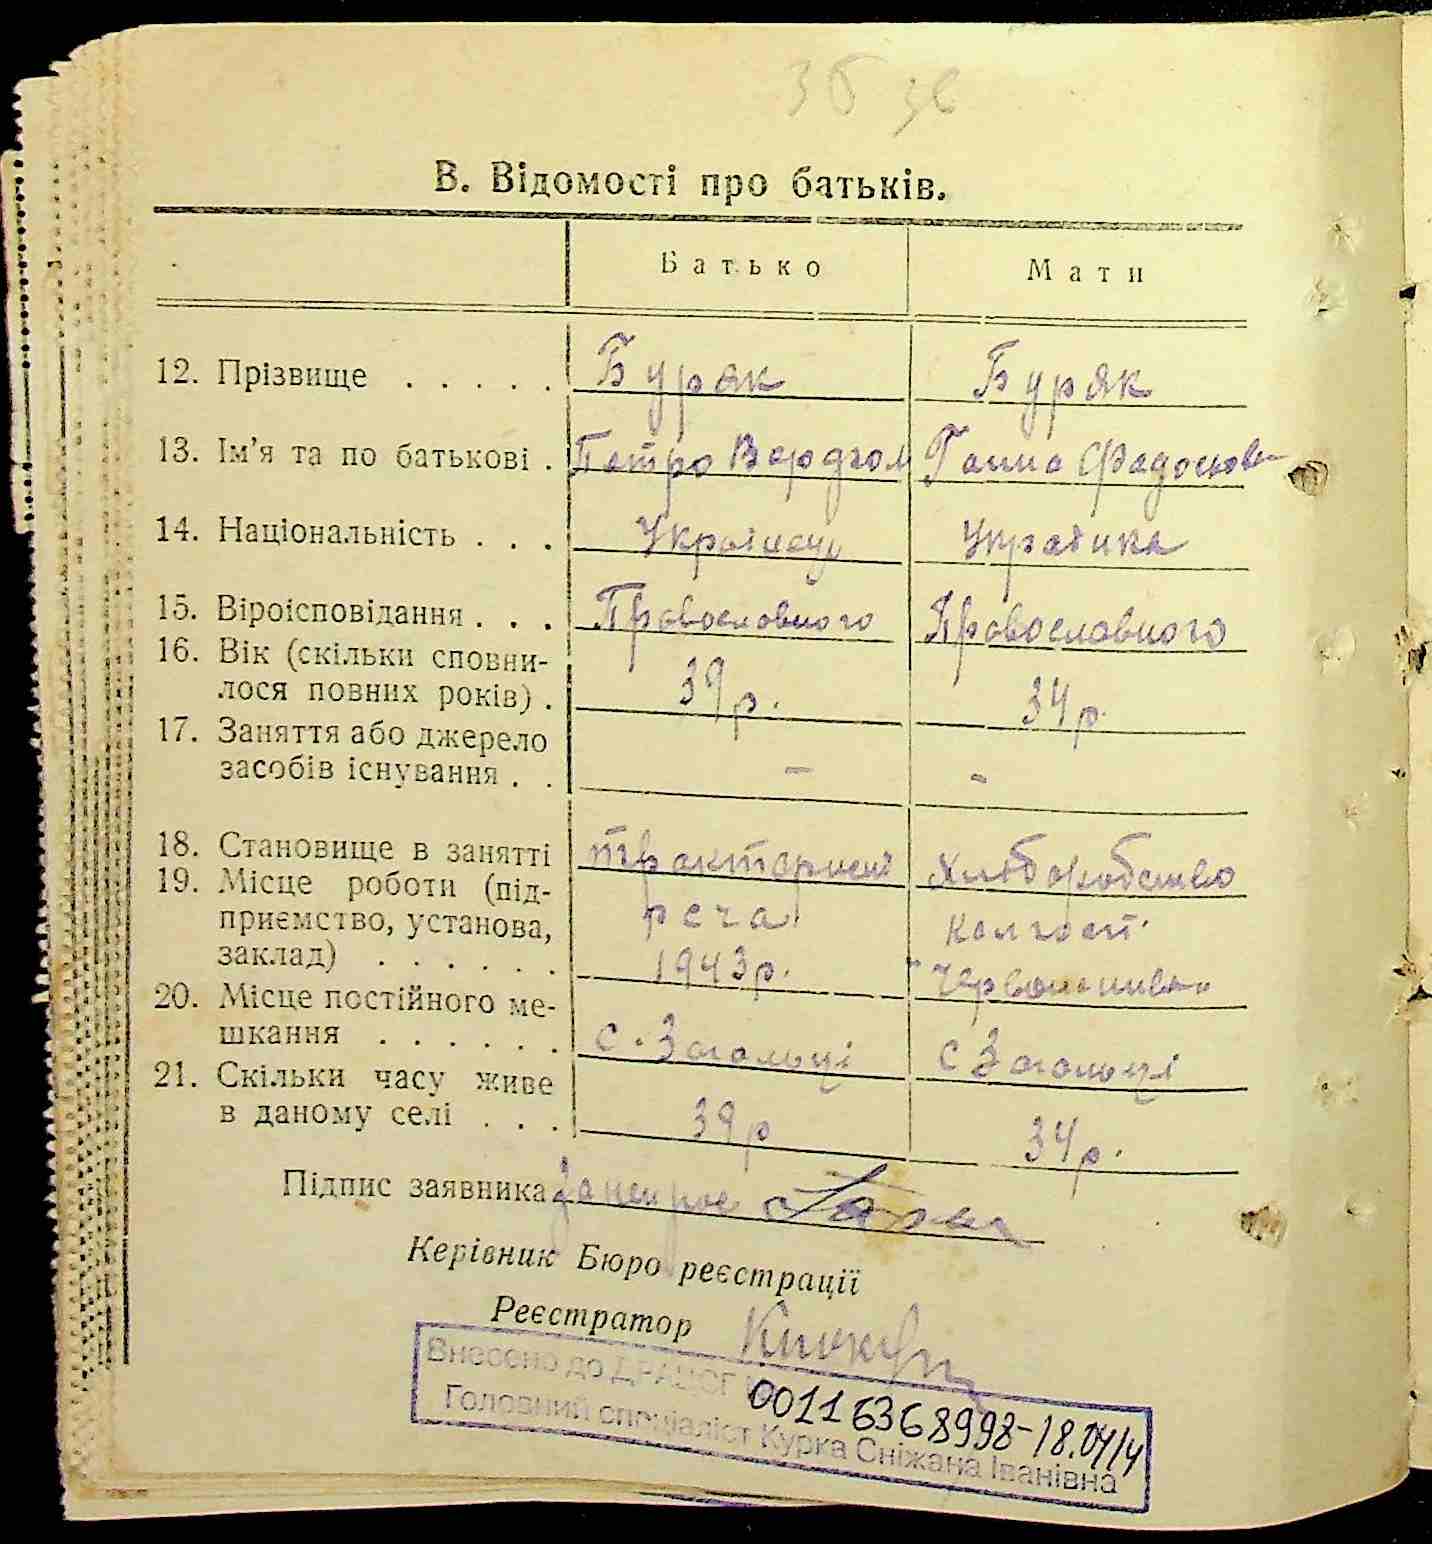 В. Відомості про батьків.
Батько Мати
12. Прізвище . . . . . Буряк Буряк
13. Ім’я та по батькові . Петро Ганна
14. Національність . . . Українець Українка
15. Віроісповідання . . . Православного Православного
16. Вік (скільки сповни-
лося повних років) . 39 р. 34 р.
17. Заняття або джерело
засобів існування . . – -
18. Становище в занятті Хліборобство
19. Місце роботи (під-
приємство, установа, колгосп.
заклад) . . . . . . 1943 р.
20. Місце постійного ме-
шкання . . . . . . с. Загальці с Загальці
21. Скільки часу живе
в даному селі . . . 39 р 34 р.
Підпис заявника
Керівник Бюро реєстрації
Реєстратор
Внесено до ДРАЦСГ 00116368998-18.04/14
Головний спеціаліст Курка Сніжана Іванівна